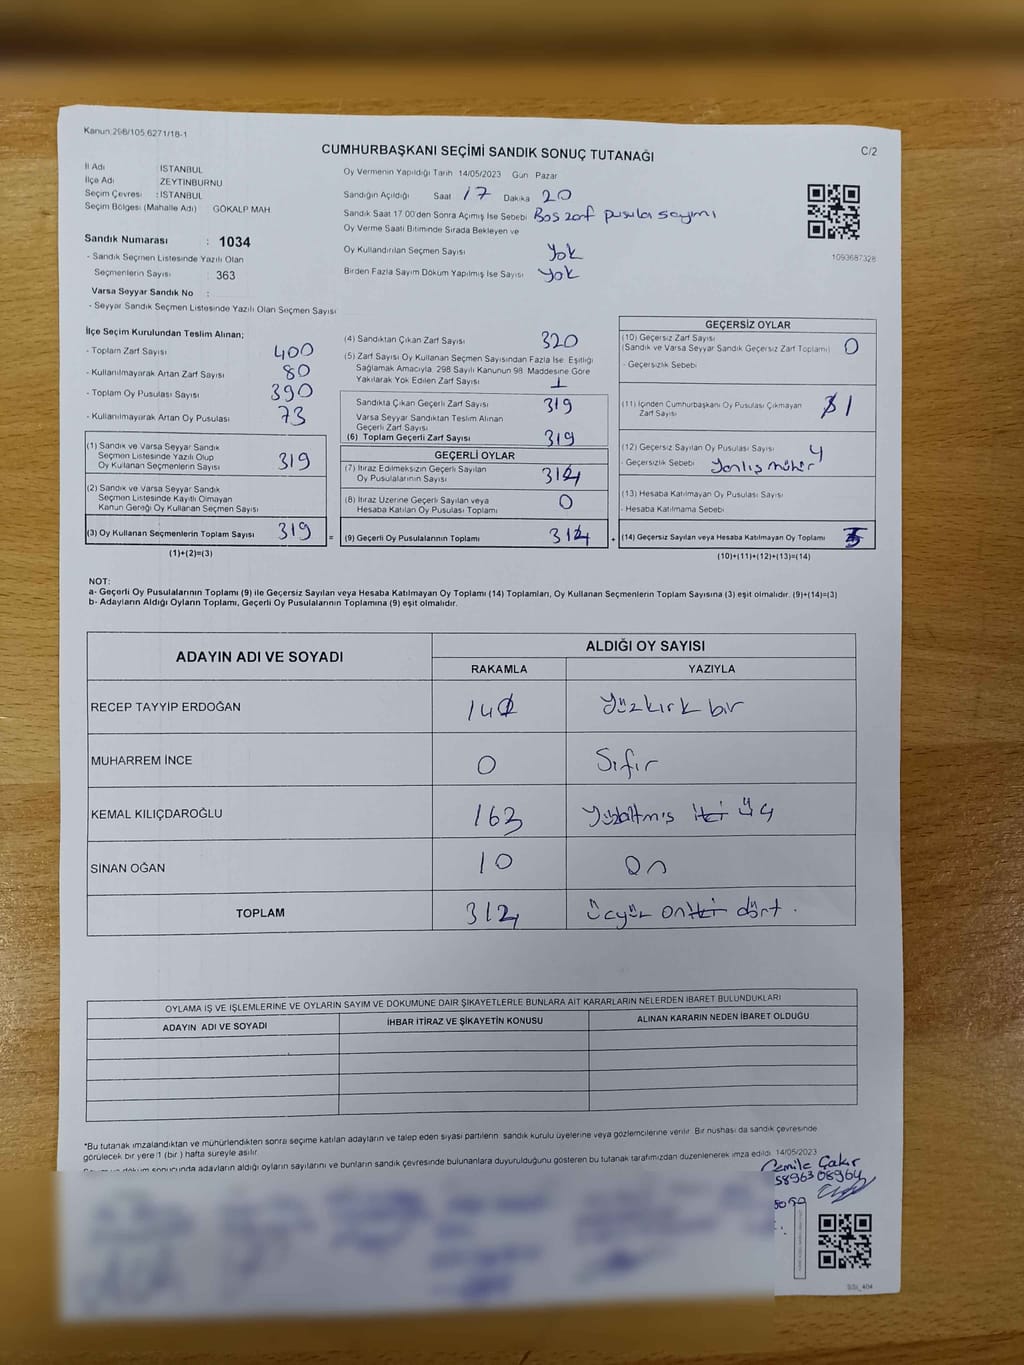 Kanun:298/105,6271/18-1
C/2
CUMHURBAŞKANI SEÇİMİ SANDIK SONUÇ TUTANAĞI
İl Adı : İSTANBUL
İlçe Adı : ZEYTİNBURNU
Seçim Çevresi : İSTANBUL
Seçim Bölgesi (Mahalle Adı) GÖKALP MAH
Sandık Numarası : 1034
- Sandık Seçmen Listesinde Yazılı Olan
Seçmenlerin Sayısı : 363
Varsa Seyyar Sandık No :
- Seyyar Sandık Seçmen Listesinde Yazılı Olan Seçmen Sayısı
Oy Vermenin Yapıldığı Tarih 14/05/2023 Gün Pazar
Sandığın Açıldığı Saat 17 Dakika 20
Sandık Saat 17 00'den Sonra Açımış İse Sebebi Boş zarf pusula sayımı
Oy Verme Saati Bitiminde Sırada Bekleyen ve
Oy Kullandırılan Seçmen Sayısı Yok
Birden Fazla Sayım Döküm Yapılmış İse Sayısı Yok
1093687328
İlçe Seçim Kurulundan Teslim Alınan;
- Toplam Zarf Sayısı 400
- Kullanılmayarak Artan Zarf Sayısı 80
- Toplam Oy Pusulası Sayısı 390
- Kullanılmayarak Artan Oy Pusulası 73
(1) Sandık ve Varsa Seyyar Sandık
Seçmen Listesinde Yazılı Olup
Oy Kullanan Seçmenlerin Sayısı 319
(2) Sandık ve Varsa Seyyar Sandık
Seçmen Listesinde Kayıtlı Olmayan
Kanun Gereği Oy Kullanan Seçmen Sayısı
(3) Oy Kullanan Seçmenlerin Toplam Sayısı 319
(1)+(2)=(3)
(4) Sandıktan Çıkan Zarf Sayısı 320
(5) Zarf Sayısı Oy Kullanan Seçmen Sayısından Fazla İse Eşitliği
Sağlamak Amacıyla 298 Sayılı Kanunun 98 Maddesine Göre
Yakılarak Yok Edilen Zarf Sayısı 1
Sandıkta Çıkan Geçerli Zarf Sayısı 319
Varsa Seyyar Sandıktan Teslim Alınan
Geçerli Zarf Sayısı
(6) Toplam Geçerli Zarf Sayısı 319
GEÇERLİ OYLAR
(7) İtiraz Edilmeksizin Geçerli Sayılan
Oy Pusulalarının Sayısı 314
(8) İtiraz Üzerine Geçerli Sayılan veya
Hesaba Katılan Oy Pusulası Toplamı 0
= (9) Geçerli Oy Pusulalarının Toplamı 314 +
GEÇERSİZ OYLAR
(10) Geçersiz Zarf Sayısı
(Sandık ve Varsa Seyyar Sandık Geçersiz Zarf Toplamı) 0
- Geçersizlik Sebebi
(11) İçinden Cumhurbaşkanı Oy Pusulası Çıkmayan
Zarf Sayısı 1
(12) Geçersiz Sayılan Oy Pusulası Sayısı 4
- Geçersizlik Sebebi Yanlış mühür
(13) Hesaba Katılmayan Oy Pusulası Sayısı
- Hesaba Katılmama Sebebi
(14) Geçersiz Sayılan veya Hesaba Katılmayan Oy Toplamı 5
(10)+(11)+(12)+(13)=(14)
NOT:
a- Geçerli Oy Pusulalarının Toplamı (9) ile Geçersiz Sayılan veya Hesaba Katılmayan Oy Toplamı (14) Toplamları, Oy Kullanan Seçmenlerin Toplam Sayısına (3) eşit olmalıdır. (9)+(14)=(3)
b- Adayların Aldığı Oyların Toplamı, Geçerli Oy Pusulalarının Toplamına (9) eşit olmalıdır.
ADAYIN ADI VE SOYADI ALDIĞI OY SAYISI
RAKAMLA YAZIYLA
RECEP TAYYİP ERDOĞAN 141 Yüzkırk bir
MUHARREM İNCE 0 Sıfır
KEMAL KILIÇDAROĞLU 163 Yüzaltmış iki üç
SİNAN OĞAN 10 On
TOPLAM 314 üçyüz oniki dört.
OYLAMA İŞ VE İŞLEMLERİNE VE OYLARIN SAYIM VE DÖKÜMÜNE DAİR ŞİKAYETLERLE BUNLARA AİT KARARLARIN NELERDEN İBARET BULUNDUKLARI
ADAYIN ADI VE SOYADI İHBAR İTİRAZ VE ŞİKAYETİN KONUSU ALINAN KARARIN NEDEN İBARET OLDUĞU
*Bu tutanak imzalandıktan ve mühürlendikten sonra seçime katılan adayların ve talep eden siyasi partilerin sandık kurulu üyelerine veya gözlemcilerine verilir. Bir nüshası da sandık çevresinde
görülecek bir yere 1 (bir) hafta süreyle asılır.
sonucunda adayların aldığı oyların sayılarını ve bunların sandık çevresinde bulunanlara duyurulduğunu gösteren bu tutanak tarafımızdan düzenlenerek imza edildi. 14/05/2023
Cemile Çakır
58963 08964